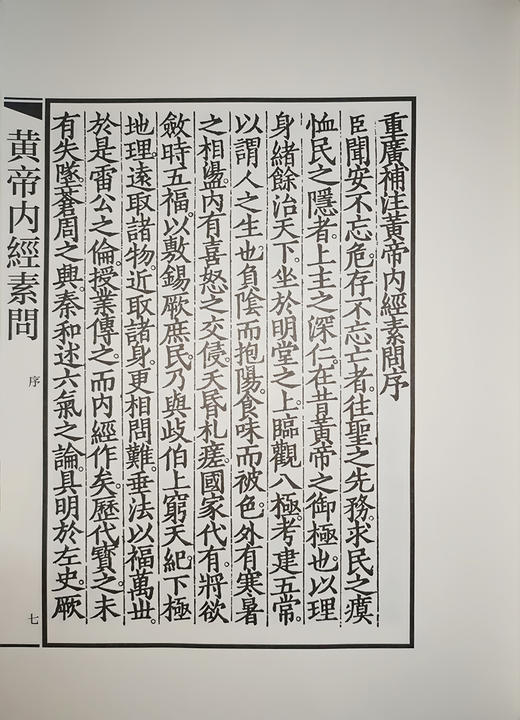 重廣補注黃帝內經素問序
臣聞安不忘危。存不忘亡者。往聖之先務。求民之瘼
恤民之隱者。上主之深仁。在昔黃帝之御極也。以理
身緒餘治天下。坐於明堂之上。臨觀八極。考建五常。
以謂人之生也。負陰而抱陽。食味而被色。外有寒暑
之相盪。內有喜怒之交侵。夭昏札瘥。國家代有。將欲
斂時五福。以敷錫厥庶民。乃與歧伯上窮天紀。下極
地理。遠取諸物。近取諸身。更相問難。垂法以福萬世。
於是雷公之倫。授業傳之。而內經作矣。歷代寶之。未
有失墜。蒼周之興。秦和述六氣之論。具明於左史。厥
黃帝內經素問
序
七